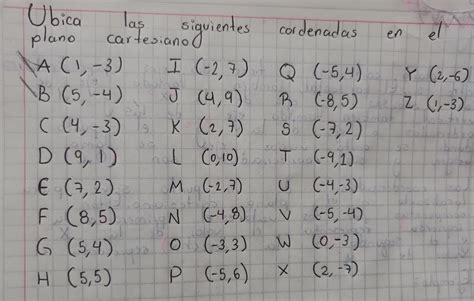 Ubica las siguientes cordenadas en el
plano cartesiano
A (1, -3) I (-2, 7) Q (-5,4) Y (2,-6)
B (5, -4) J (4, 9) R (-8,5) Z (1,-3)
C (4, -3) K (2, 7) S (-7, 2)
D (9, 1) L (0,10) T (-9,1)
E (7, 2) M (-2,7) U (-4,-3)
F (8,5) N (-4,8) V (-5, -4)
G (5,4) O (-3,3) W (0,-3)
H (5,5) P (-5,6) X (2, -7)